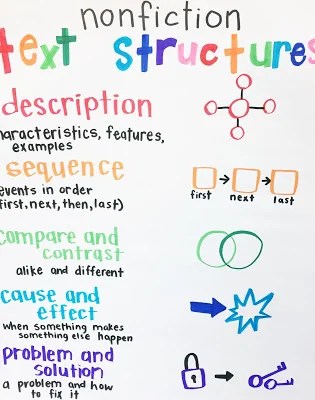 nonfiction
text structures
description
haracteristics, features,
examples
sequence
events in order
first, next, then, last)
first next last
compare and
contrast
alike and different
cause and
effect
when something makes
something else happen
problem and
solution
a problem and how
to fix it